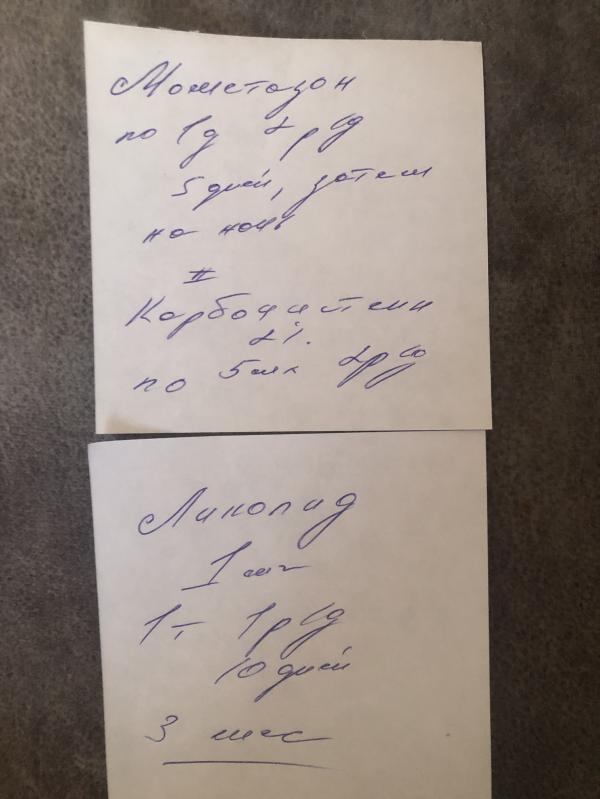 Мометазон
по 1д 2 р/д
5 дней, затем
на ночь
II
Карбоцистеин
2%.
по 5 мл 2р/д
Ликопид
1 мг
1т 1р/д
10 дней
3 мес